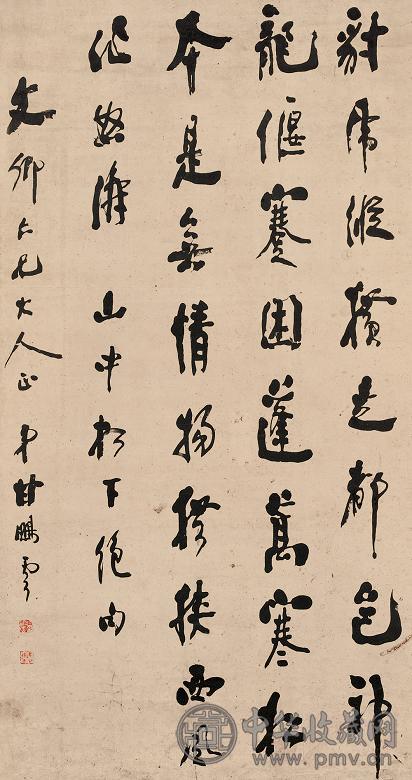 豺虎縱橫走都邑神
龍偃蹇困蓬蒿寒松
本是無情物挾西風
作怒濤 山中松下絕句
文卿仁兄大人正 弟甘鵬雲
中华收藏网
www.pmv.cn